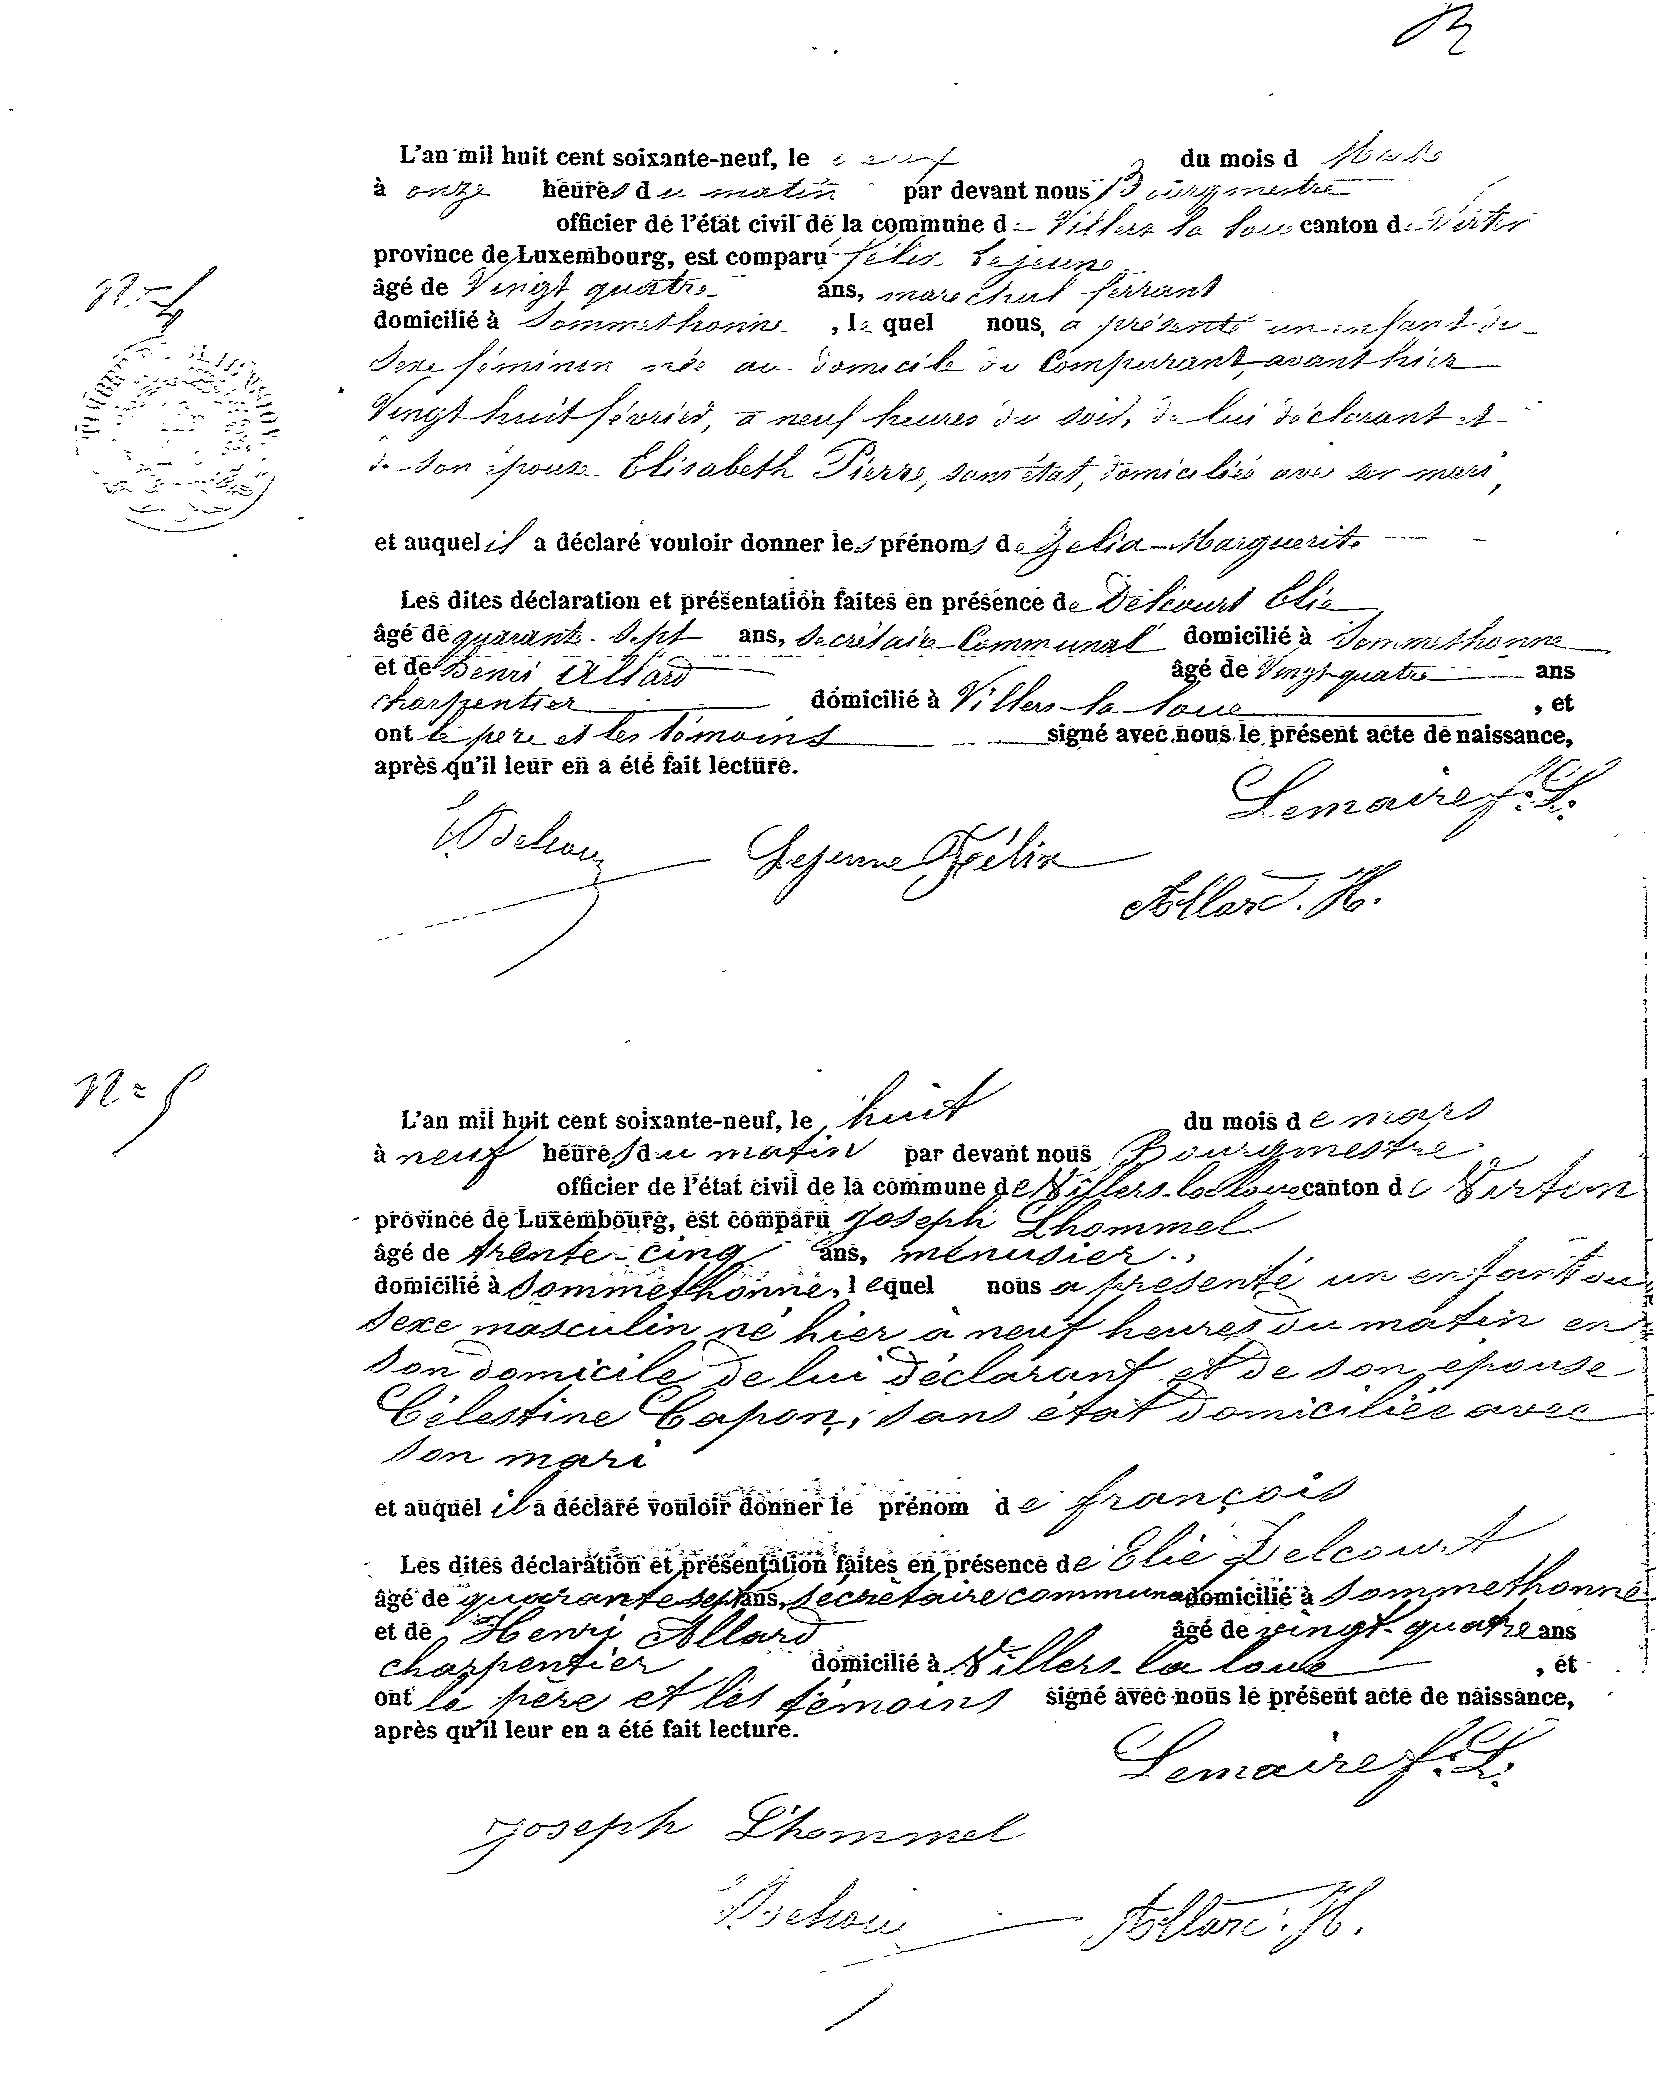 N° 4
L'an mil huit cent soixante-neuf, le du mois d Mars
à onze heures du matin par devant nous Bourgmestre
officier de l'état civil de la commune de Villers la loue canton de Virton
province de Luxembourg, est comparu félix Lejeune
âgé de Vingt quatre ans, marechal ferrant
domicilié à Sommethonne , le quel nous, a présenté un enfant du
Sexe féminin née au domicile du Comparant, avant hier
Vingt huit février, à neuf heures du soir, de lui déclarant et
de son épouse Elisabeth Pierre, sans état, domiciliée avec son mari,
et auquel il a déclaré vouloir donner les prénoms de Zelia-Marguerite
Les dites déclaration et présentation faites en présence de Delcourt Elie
âgé de quarante-sept ans, Secrétaire Communal domicilié à Sommethonne
et de Henri Allard âgé de Vingt-quatre ans
charpentier domicilié à Villers-la-loue , et
ont le père et les témoins signé avec nous le présent acte de naissance,
après qu'il leur en a été fait lecture.
Lemaire f. L.
Lejeune Félix
Allard. H.
N° 5
L'an mil huit cent soixante-neuf, le huit du mois de mars
à neuf heures du matin par devant nous Bourgmestre
officier de l'état civil de la commune de Villers-la-loue canton de Virton
province de Luxembourg, est comparu Joseph Lhommel
âgé de trente-cinq ans, menusier
domicilié à Sommethonne, lequel nous a presenté un enfant du
Sexe masculin né hier à neuf heures du matin en
son domicile de lui déclarant et de son epouse
Célestine Capon, sans état domiciliée avec
son mari
et auquel il a déclaré vouloir donner le prénom de françois
Les dites déclaration et présentation faites en présence de Elie Delcourt
âgé de quarante sept ans, secrétaire communal domicilié à Sommethonne
et de Henri Allard âgé de vingt-quatre ans
charpentier domicilié à Villers-la loue , et
ont le père et les témoins signé avec nous le présent acte de naissance,
après qu'il leur en a été fait lecture.
Lemaire f. L.
Joseph Lhommel
Allard. H.